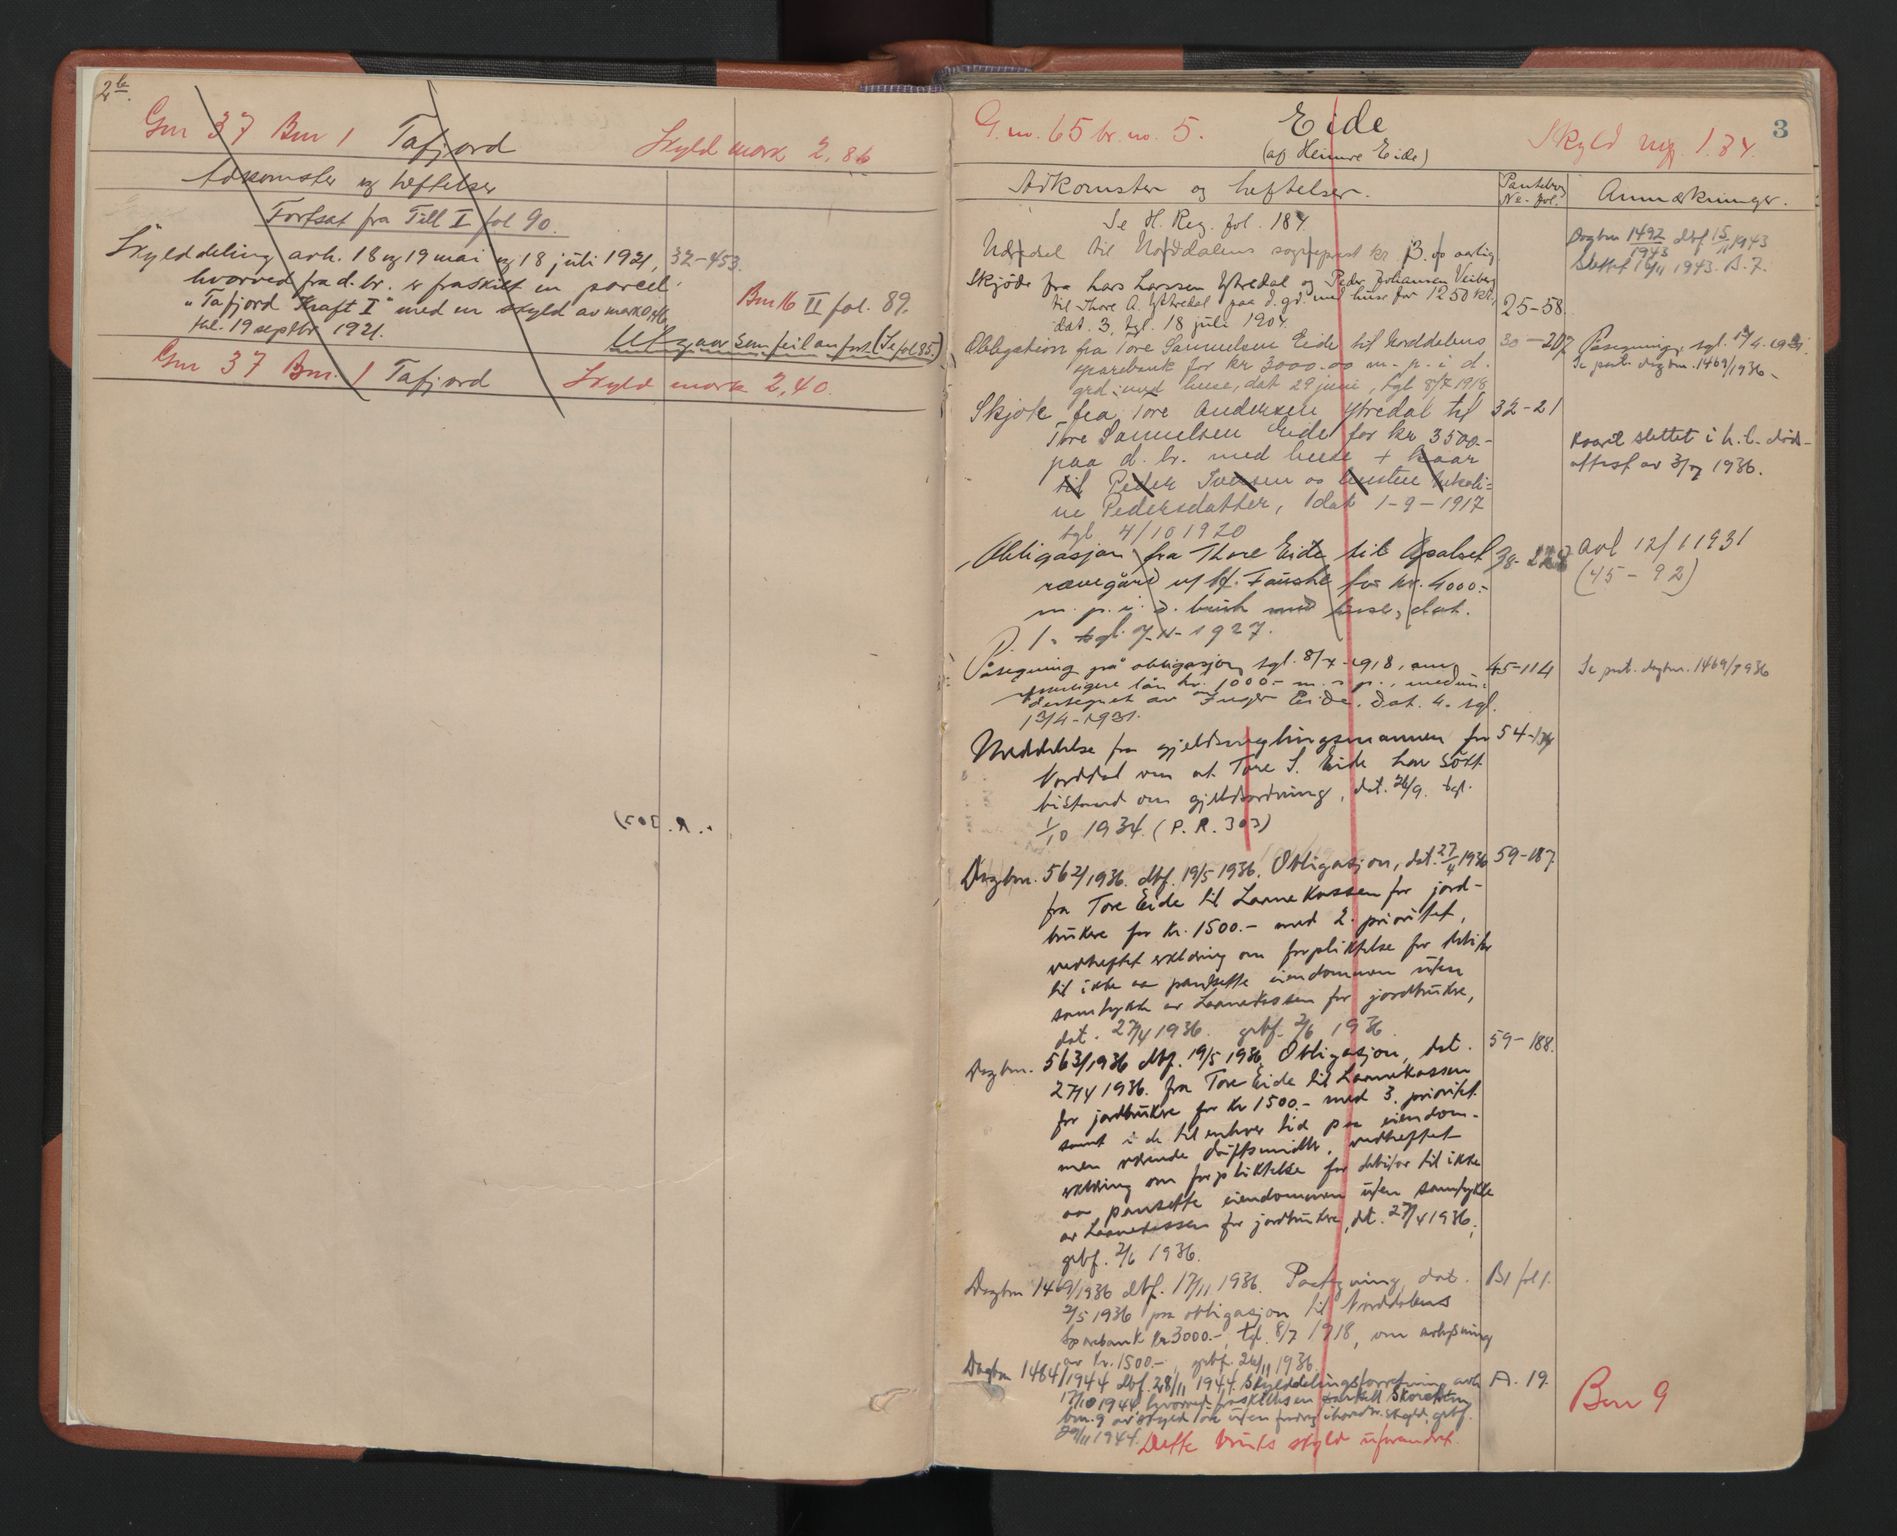 2b.
Gnr 37 Bnr 1 Tafjord Skyld mark 2,86
Adkomster og heftelser
Fortsat fra Till I fol 90.
Skylddeling avh. 18 og 19 mai og 18 juli 1921, 32-453.
hvorved fra d. br. er fraskilt en parcel
"Tafjord Kraft I" med en skyld av mark Bnr 16 II fol. 89.
tgl. 19 septbr 1921.
Utgaar som feil anført (Se fol 85.)
Gnr 37 Bnr. 1 Tafjord Skyld mark 2,40.
3
G. no. 65 br. no. 5. Eide Skyld 1.34.
(af Heimre Eide)
Adkomster og heftelser. Pantebog No. fol. Anmærkninger.
Se H. Reg. fol. 187.
til Norddalens sogneprest kr. 3.00 aarlig Dagbnr 1492/1943 dbf 15/11 1943
Slettet 16/11 1943. B. 7.
Skjøde fra Lars Larssen Ytredal og Peder Johansen
til Thore A. Ytredal paa d. gd. med huse for 1250 kr, 25-58.
dat. 3, tgl. 18 juli 1904.
Obligation fra Tore Samuelsen Eide til Norddalens 30-207 Paategning, tgl. 1931.
sparebank for kr 3000.00 m. p. i d. Se pat. dagbnr. 1469/1936
grd. med huse, dat 29 juni, tgl 8/7 1918
Skjøte fra Tore Andersen Ytredal til 32-21
Tore Samuelsen Eide for kr 3500.-
paa d. br. med huse + kaar Kaaret slettet i h. t. døds-
til Peder Iversen og hustru attest av 3/7 1936.
ne Pedersdatter, dat 1-9-1917
tgl 4/10 1920
Obligasjon fra Thore Eide til Opalset 38-228 Avl 12/1 1931
rævegård v/ Fauske for kr. 4000.- (45-92)
m. p. i d. bruk med huse, dat.
1. tgl. 1927.
Påtegning på obligasjon tgl. 8/7-1918, om 45-114 Se pat. dagbnr. 1469/1936
ytterligere lån kr. 1000.- m. s. p., medun-
dertegnet av Inger Eide. Dat. 4. tgl.
13/4-1931.
Meddelelse fra gjeldsmeglingsmannen for 54-
Norddal om at Tore S. Eide har søkt
bistand om gjeldsordning, dat. 26/9. tgl.
1/10 1934. (P. R. 303)
Dagbnr. 562/1936. dbf. 19/5 1936. Obligasjon, dat. 27/4 1936 59-187.
fra Tore Eide til Laanekassen for jord-
brukere for kr. 1500.- med 2. prioritet,
vedheftet erklæring om forpliktelse for debitor
til ikke aa pantsette eiendommen uten
samtykke av Laanekassen for jordbrukere,
dat. 27/4 1936. grbf. 2/6 1936.
Dagbnr. 563/1936 dbf. 19/5 1936. Obligasjon, dat. 59-188.
27/4 1936. fra Tore Eide til Laanekassen
for jordbrukere for kr 1500.- med 3. prioritet
samt i de til enhver tid paa eiendom-
men værende driftsmidler, vedheftet
erklæring om forpliktelse for debitor til ikke
aa pantsette eiendommen uten samtykke
av Laanekassen for jordbrukere, dat. 27/4 1936,
grbf. 2/6 1936.
Dagbnr 1469/1936 dbf. 17/11 1936. Paategning, dat. B1 fol 1.
2/5 1936 paa obligasjon til Norddalens
Sparebank kr 3000.-, tgl. 8/7 1918, om avlysning
av kr. 1500.- grbf. 26/11 1936.
Dagbnr 1484/1944 dbf. 28/11 1944. Skylddelingsforretning avh. A. 19.
17/10 1944 hvorved
bnr. 9 av skyld øre uten skyld, grbf. Bnr 9
29/11 1944. Dette bruks skyld uforandret.